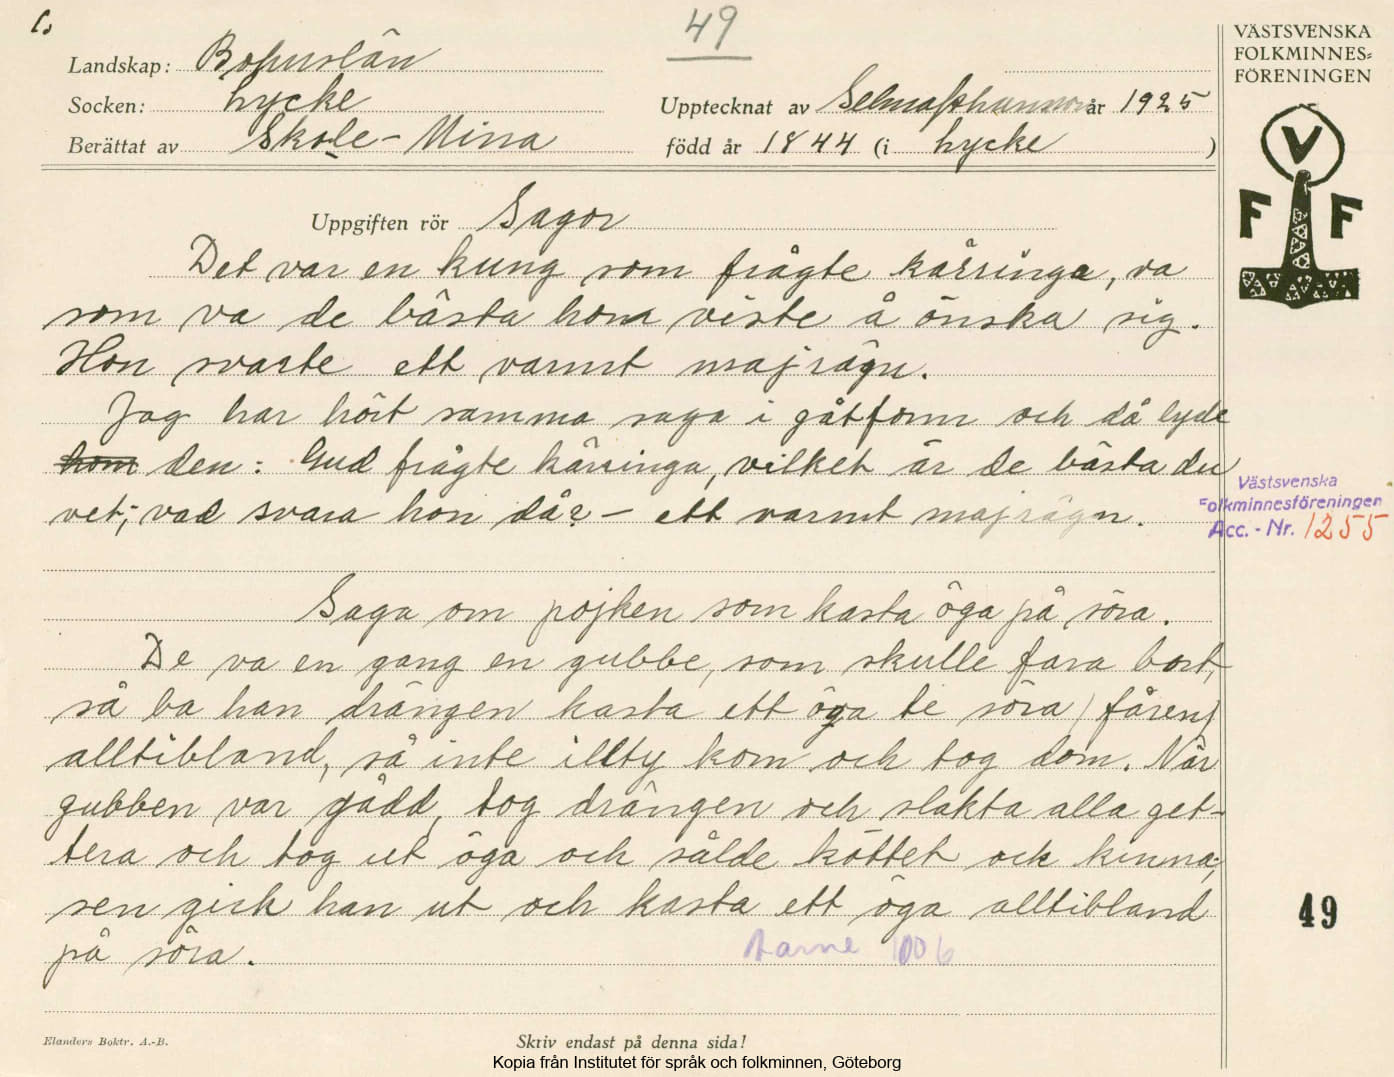 49
VÄSTSVENSKA
FOLKMINNES-
FÖRENINGEN
Landskap: Bohuslän
Socken: Lycke
Upptecknat av Selma Johansson år 1925
Berättat av Skole-Mina
född år 1844 (i Lycke )
V
F F
Uppgiften rör Sagor
Det var en kung som frågte kärringa, va
som va de bästa hona viste å önska sig.
Hon svarte ett varmt majrägn.
Jag har hört samma saga i gåtform och då lyde
hon den: Gud frågte kärringa, vilket är de bästa du
vet; vad svara hon då? — ett varmt majrägn.
Västsvenska
Folkminnesföreningen
Acc. - Nr. 1255
Saga om pojken som kasta öga på söra.
De va en gang en gubbe, som skulle fara bort,
så ba han drängen kasta ett öga te söra (fåren)
alltibland, så inte illty kom och tog dom. När
gubben var gådd, tog drängen och slakta alla get-
tera och tog ut öga och sålde köttet ock kinna;
sen gick han ut och kasta ett öga alltibland
på söra.
Aarne 1006
49
Elanders Boktr. A.-B.
Skriv endast på denna sida!
Kopia från Institutet för språk och folkminnen, Göteborg